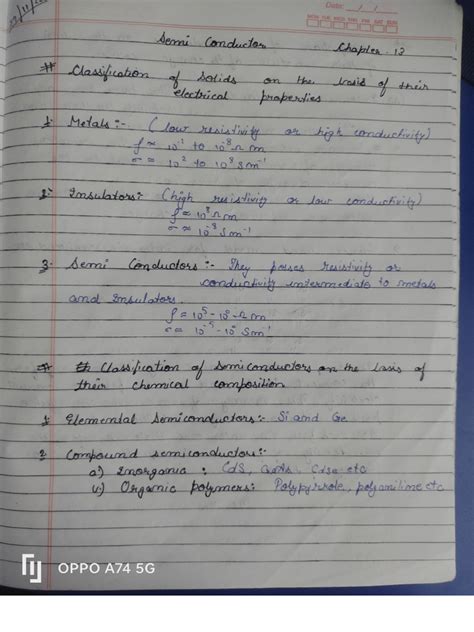 Date: / /
MON TUE WED THU FRI SAT SUN
Semi Conductor Chapter 12
# Classification of Solids on the basis of their
electrical properties
1. Metals:- (low resistivity or high conductivity)
ρ ≈ 10⁻¹ to 10⁸ Ω m
σ ≈ 10² to 10⁸ Sm⁻¹
2. Insulators:- (high resistivity or low conductivity)
ρ ≈ 10⁸ Ω m
σ ≈ 10⁻⁸ Sm⁻¹
3. Semi Conductors:- They posses resistivity or
conductivity intermediate to metals
and Insulators.
ρ ≈ 10⁵ - 10⁰ Ω m
σ ≈ 10⁻⁵ - 10⁰ Sm⁻¹
# Classification of Semiconductors on the basis of
their chemical composition
1. Elemental Semiconductors:- Si and Ge
2. Compound semiconductors:-
a) Inorganic : CdS, GaAs, CdSe etc
Organic polymers: Polypyrrole, polyaniline etc
OPPO A74 5G